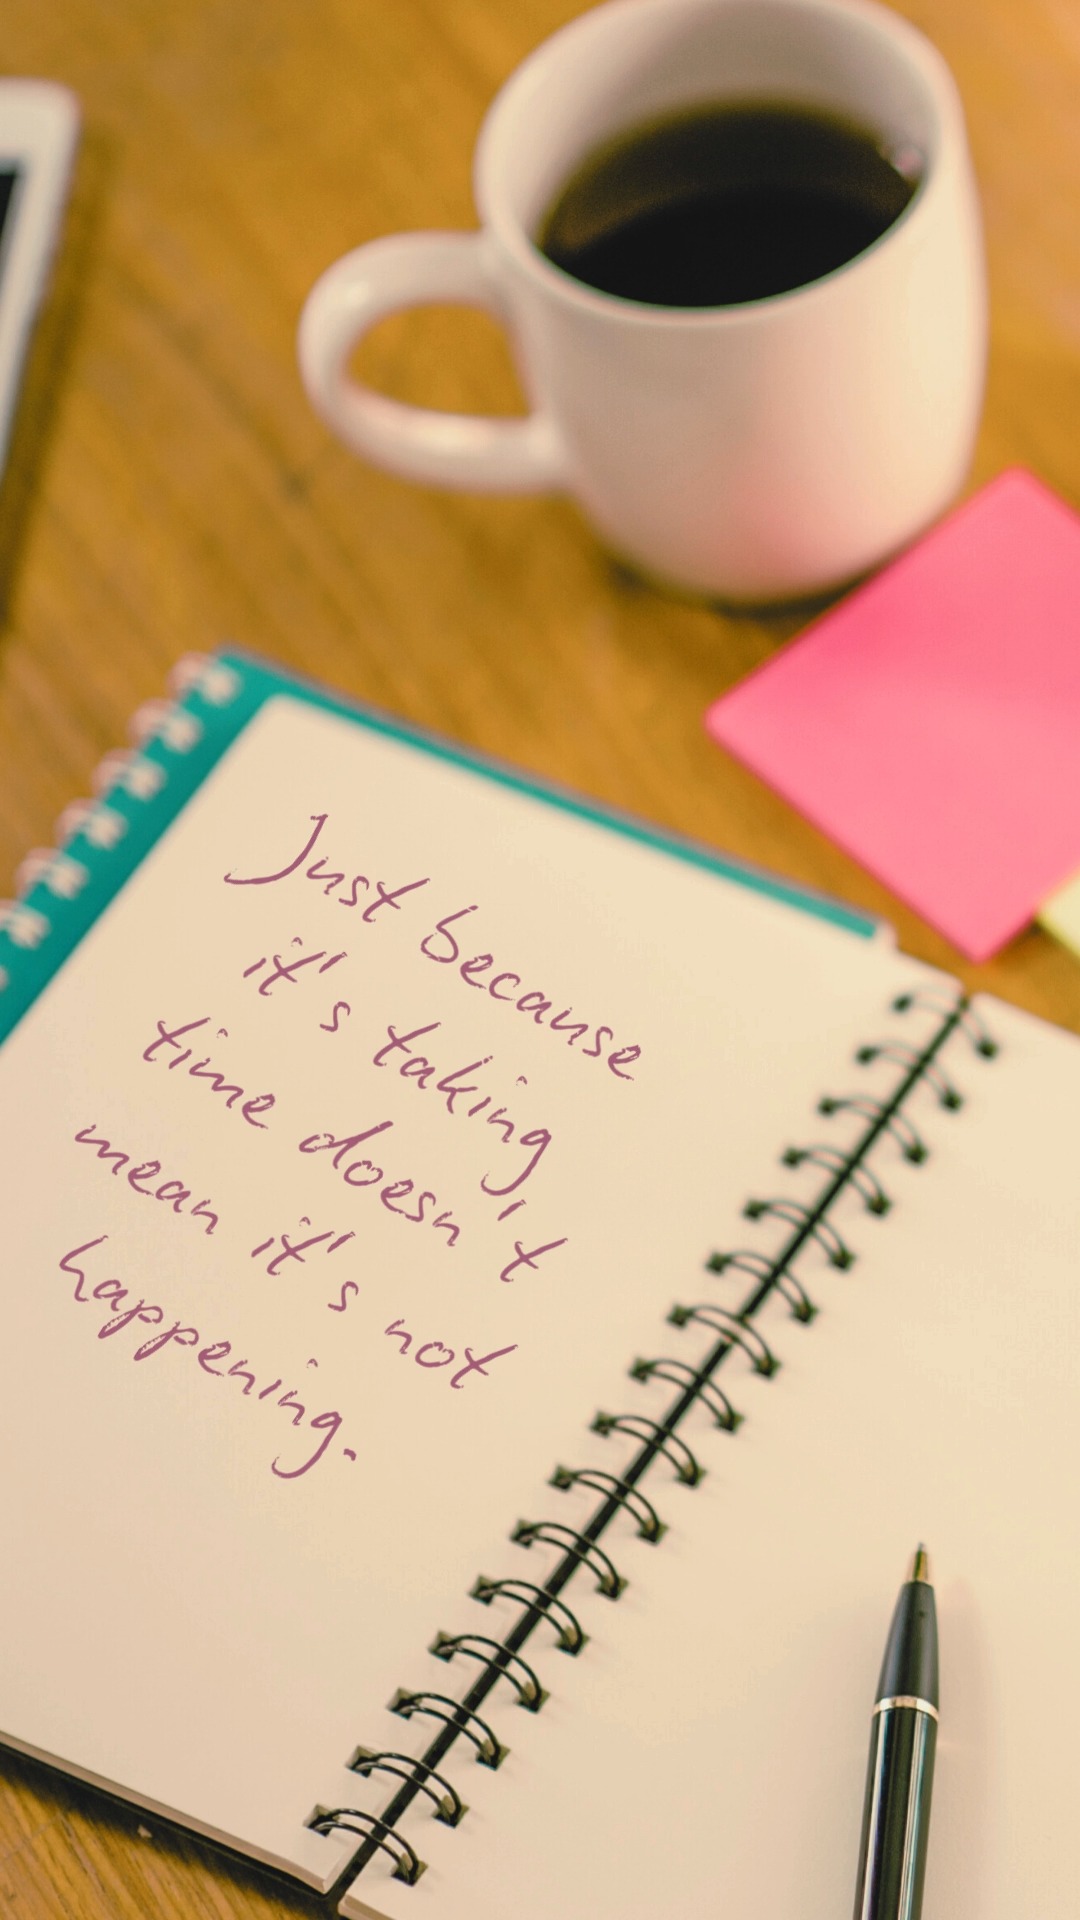 Just because
it's taking
time doesn't
mean it's not
happening.